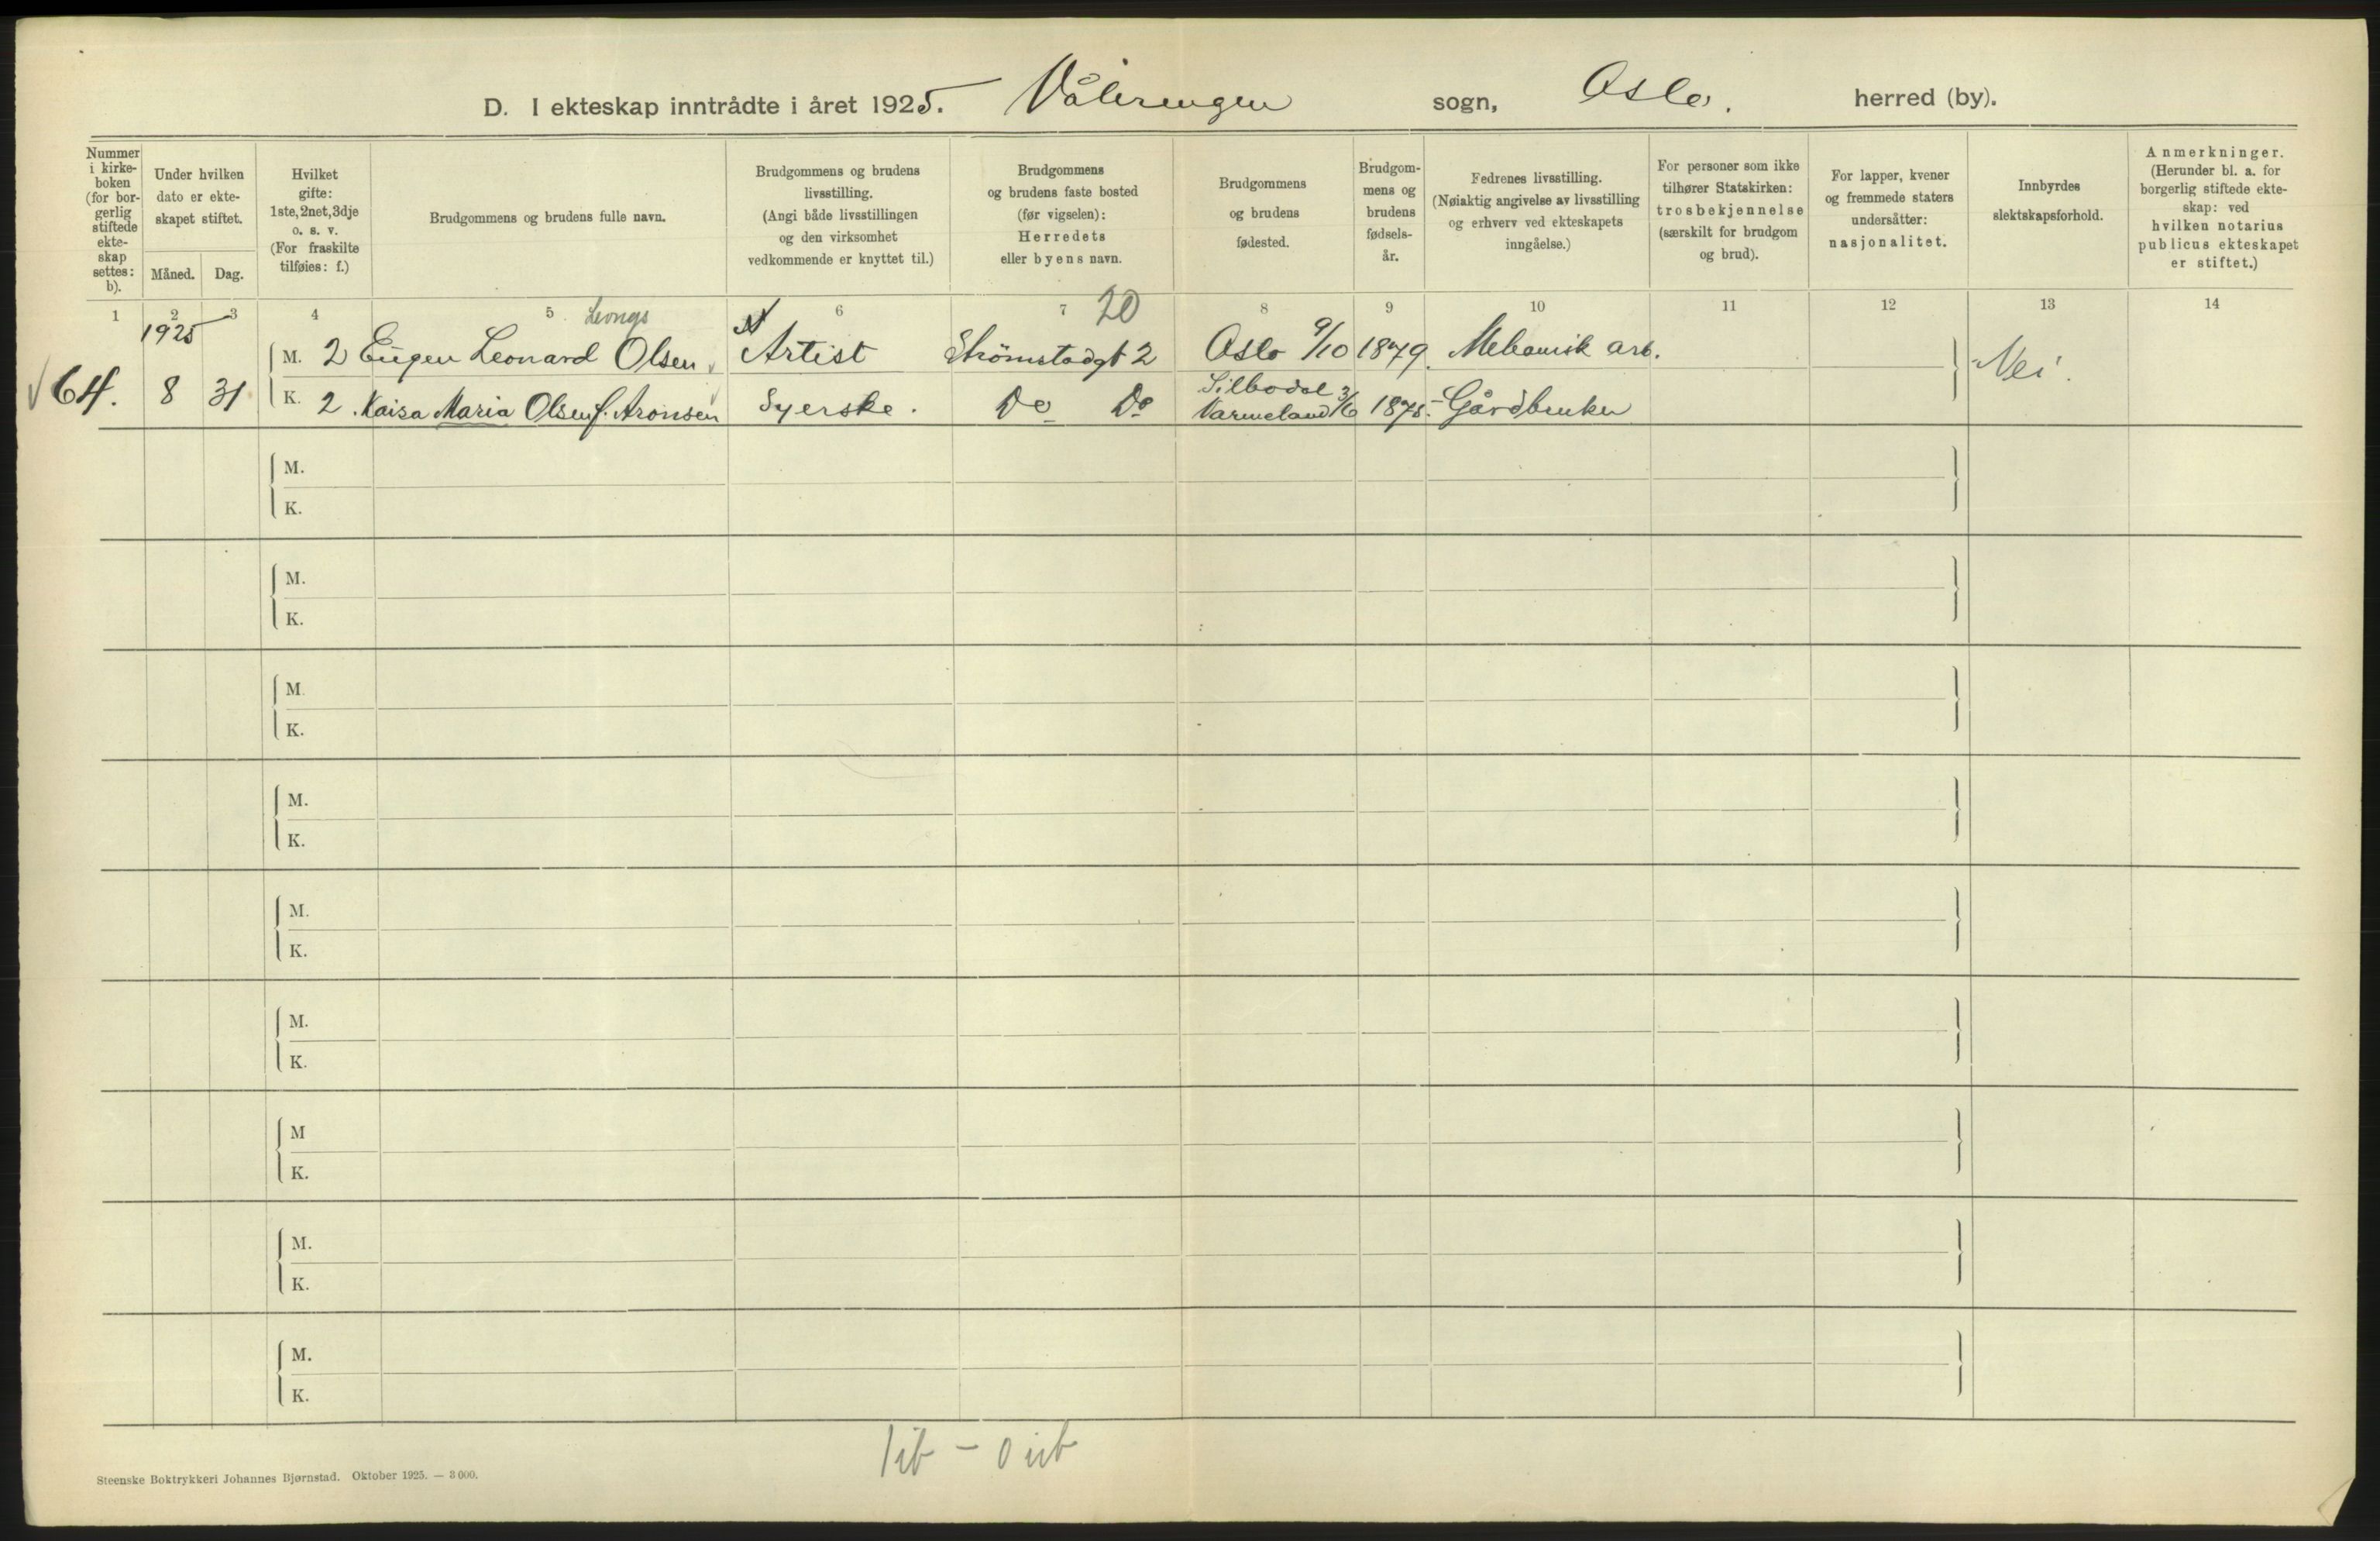 D. I ekteskap inntrådte i året 1925. Vålerengen sogn, Oslo. herred (by).
Nummer
i kirke-
boken
(for bor-
gerlig
stiftede
ekte-
skap
settes:
b).
Under hvilken
dato er ekte-
skapet stiftet.
Måned. Dag.
Hvilket
gifte:
1ste, 2net, 3dje
o. s. v.
(For fraskilte
tilføies: f.)
Brudgommens og brudens fulle navn.
Brudgommens og brudens
livsstilling.
(Angi både livsstillingen
og den virksomhet
vedkommende er knyttet til.)
Brudgommens
og brudens faste bosted
(før vigselen):
Herredets
eller byens navn.
Brudgommens
og brudens
fødested.
Brudgom-
mens og
brudens
fødsels-
år.
Fedrenes livsstilling.
(Nøiaktig angivelse av livsstilling
og erhverv ved ekteskapets
inngåelse.)
For personer som ikke
tilhører Statskirken:
trosbekjennelse
(særskilt for brudgom
og brud).
For lapper, kvener
og fremmede staters
undersåtter:
nasjonalitet.
Innbyrdes
slektskapsforhold.
Anmerkninger.
(Herunder bl. a. for
borgerlig stiftede ekte-
skap: ved
hvilken notarius
publicus ekteskapet
er stiftet.)
1 2 3 4 5 6 7 20 8 9 10 11 12 13 14
1925
M. 2 Eugen Leonard Olsen Artist Strömstadgt 2 Oslo 9/10 1879. Mekanisk arb.
64. 8 31 K. 2. Kaisa Maria Olsen f. Aronsen Syerske. Do Do Silbodal Varmeland 3/6 1875. Gårdbruker Nei.
M.
K.
M.
K.
M.
K.
M.
K.
M.
K.
M.
K.
M
K.
M.
K.
M.
K.
1 ib - 0 ub
Steenske Boktrykkeri Johannes Bjørnstad. Oktober 1925. — 3 000.